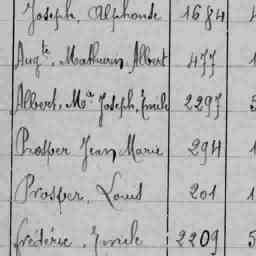 Joseph, Alphonse 1684
Augte, Mathurin, Albert 477 1
Albert, Ma Joseph, Emile 2297 5
Prosper Jean Marie 294 1
Prosper, Louis 201 1
Frédéric, Emile 2209 5